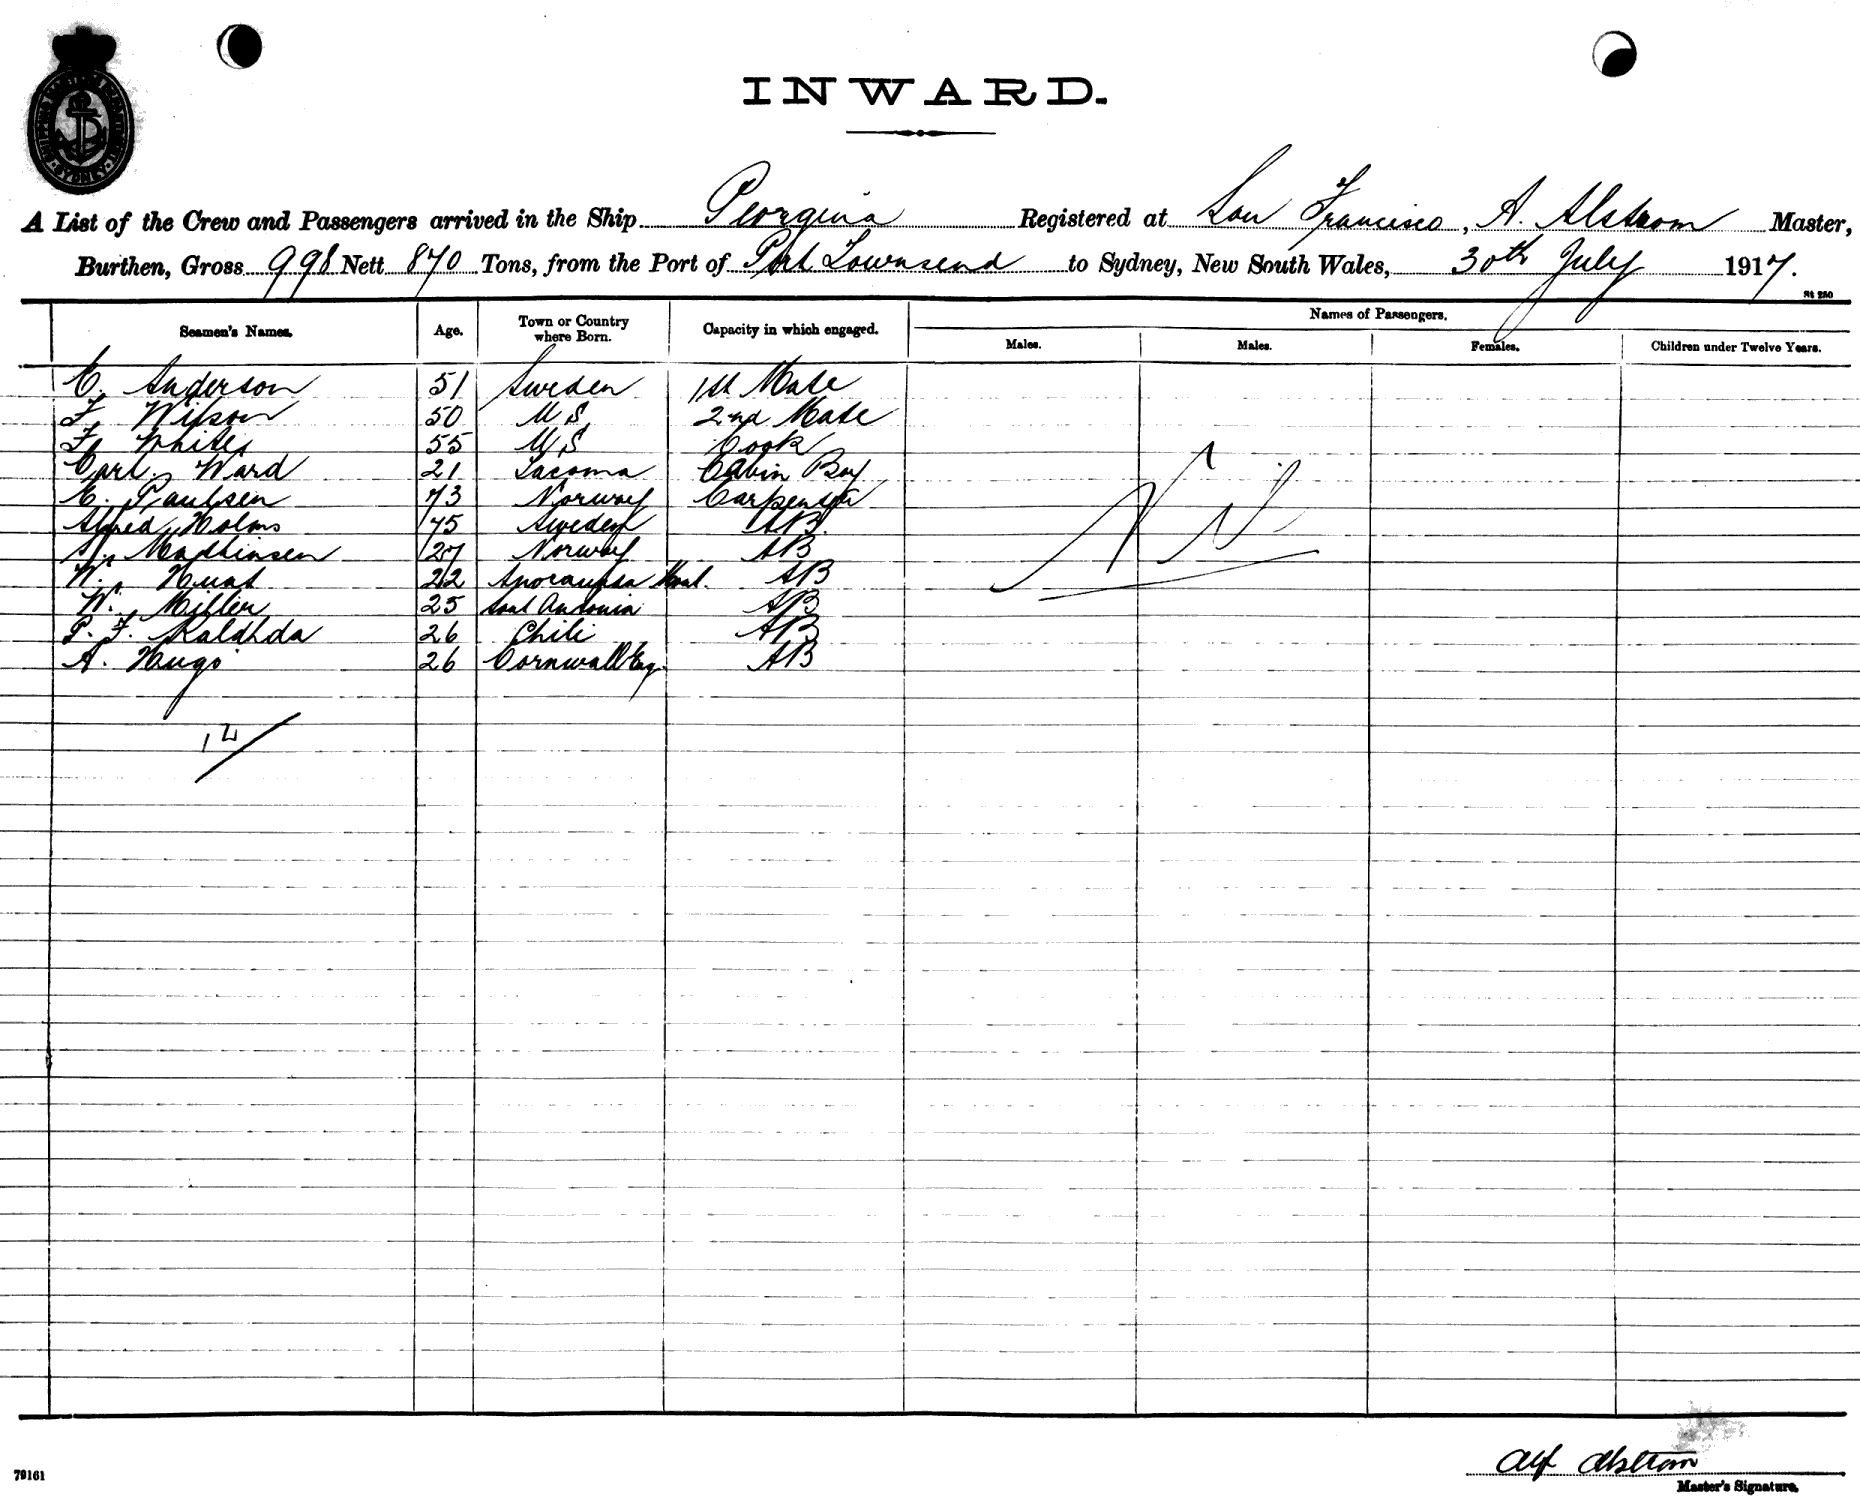 SHIPPING MASTER'S DEPARTMENT SYDNEY
INWARD.
A List of the Crew and Passengers arrived in the Ship Georgina Registered at San Francisco, A. Alstrom Master,
Burthen, Gross 998 Nett 870 Tons, from the Port of Port Townsend to Sydney, New South Wales, 30th July 1917.
St 250
Seamen's Names. Age. Town or Country where Born. Capacity in which engaged. Names of Passengers.
Males. Males. Females. Children under Twelve Years.
C. Anderson 51 Sweden 1st Mate
F. Wilson 50 U S 2nd Mate
F. White 55 U S Cook
Carl Ward 21 Tacoma Cabin Boy
C. Paulsen 73 Norway Carpenter
Alfred Holms 75 Sweden AB
Mathinsen 27 Norway AB
W. Hunt 22 AB
W. Miller 25 San Antonia AB
P. F. 26 Chili AB
A. Hugo 26 Cornwall Eng. AB
Nil
12
Alf Alstrom
Master's Signature.
79161